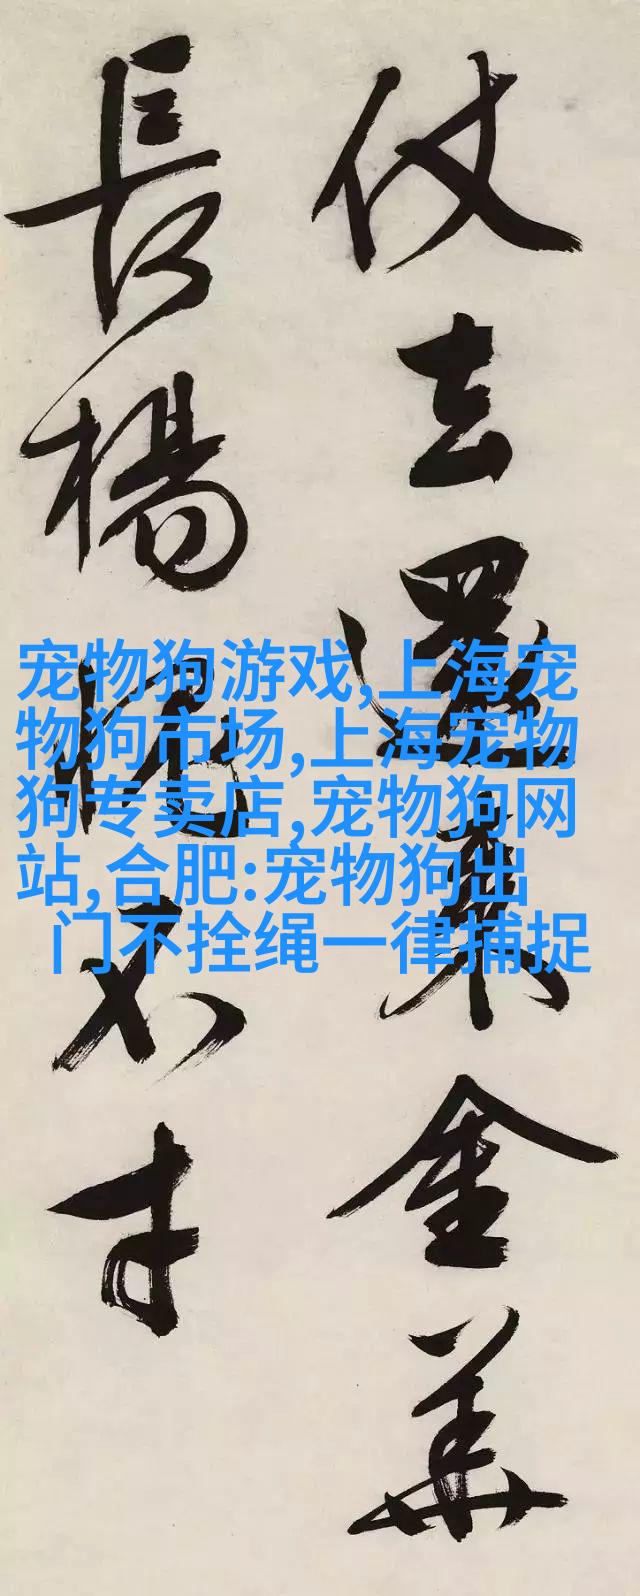 仗去還金華
長楊不才
宠物狗游戏,上海宠
物狗市场,上海宠物
狗专卖店,宠物狗网
站,合肥:宠物狗出
门不拴绳一律捕捉